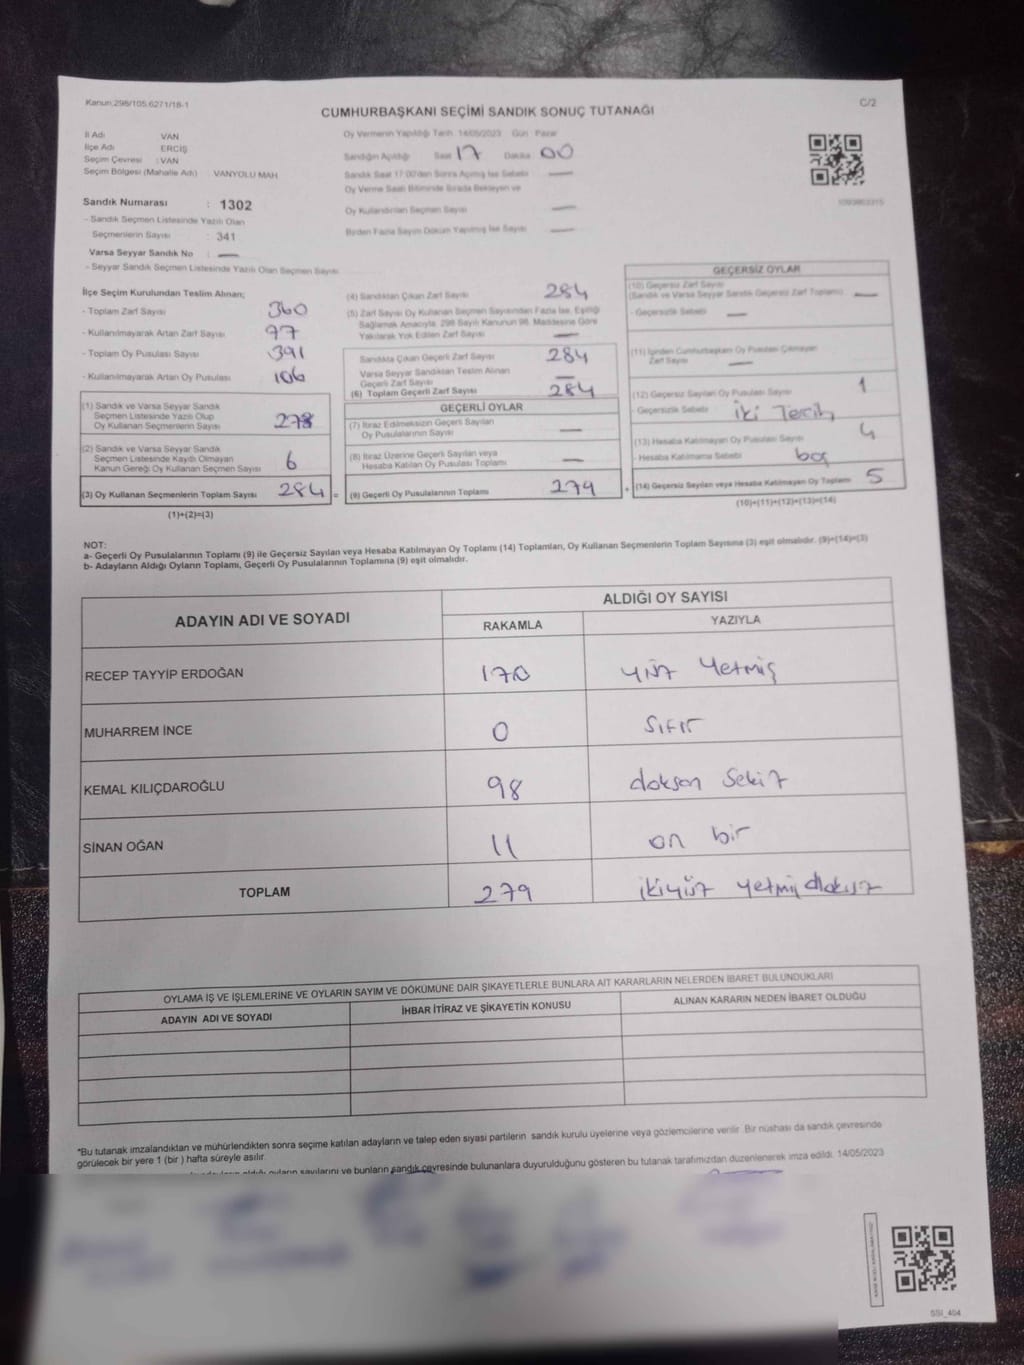 Kanun:298/105,6271/18-1
C/2
CUMHURBAŞKANI SEÇİMİ SANDIK SONUÇ TUTANAĞI
İl Adı VAN
İlçe Adı ERCİŞ
Seçim Çevresi : VAN
Seçim Bölgesi (Mahalle Adı) VANYOLU MAH
Sandık Numarası : 1302
- Sandık Seçmen Listesinde Yazılı Olan
Seçmenlerin Sayısı : 341
Varsa Seyyar Sandık No : —
- Seyyar Sandık Seçmen Listesinde Yazılı Olan Seçmen Sayısı
Oy Vermenin Yapıldığı Tarih 14/05/2023 Gün : Pazar
Sandığın Açıldığı Saat 17 Dakika 00
Sandık Saat 17:00'den Sonra Açılmış İse Sebebi —
Oy Verme Saati Bitiminde Sırada Bekleyen ve
Oy Kullandırılan Seçmen Sayısı —
Birden Fazla Sayım Döküm Yapılmış İse Sayısı —
İlçe Seçim Kurulundan Teslim Alınan;
- Toplam Zarf Sayısı 360
- Kullanılmayarak Artan Zarf Sayısı 77
- Toplam Oy Pusulası Sayısı 391
- Kullanılmayarak Artan Oy Pusulası 106
(1) Sandık ve Varsa Seyyar Sandık
Seçmen Listesinde Yazılı Olup
Oy Kullanan Seçmenlerin Sayısı 278
(2) Sandık ve Varsa Seyyar Sandık
Seçmen Listesinde Kayıtlı Olmayan
Kanun Gereği Oy Kullanan Seçmen Sayısı 6
(3) Oy Kullanan Seçmenlerin Toplam Sayısı 284 =
(1)+(2)=(3)
(4) Sandıktan Çıkan Zarf Sayısı 284
(5) Zarf Sayısı Oy Kullanan Seçmen Sayısından Fazla İse, Eşitliği
Sağlamak Amacıyla, 298 Sayılı Kanunun 98. Maddesine Göre
Yakılarak Yok Edilen Zarf Sayısı —
Sandıkta Çıkan Geçerli Zarf Sayısı 284
Varsa Seyyar Sandıktan Teslim Alınan
Geçerli Zarf Sayısı —
(6) Toplam Geçerli Zarf Sayısı 284
GEÇERLİ OYLAR
(7) İtiraz Edilmeksizin Geçerli Sayılan
Oy Pusulalarının Sayısı —
(8) İtiraz Üzerine Geçerli Sayılan veya
Hesaba Katılan Oy Pusulası Toplamı —
(9) Geçerli Oy Pusulalarının Toplamı 279 +
GEÇERSİZ OYLAR
(10) Geçersiz Zarf Sayısı
(Sandık ve Varsa Seyyar Sandık Geçersiz Zarf Toplamı) —
- Geçersizlik Sebebi —
(11) İçinden Cumhurbaşkanı Oy Pusulası Çıkmayan
Zarf Sayısı —
(12) Geçersiz Sayılan Oy Pusulası Sayısı 1
- Geçersizlik Sebebi iki Tercih
(13) Hesaba Katılmayan Oy Pusulası Sayısı 4
- Hesaba Katılmama Sebebi boş
(14) Geçersiz Sayılan veya Hesaba Katılmayan Oy Toplamı 5
(10)+(11)+(12)+(13)=(14)
NOT:
a- Geçerli Oy Pusulalarının Toplamı (9) ile Geçersiz Sayılan veya Hesaba Katılmayan Oy Toplamı (14) Toplamları, Oy Kullanan Seçmenlerin Toplam Sayısına (3) eşit olmalıdır. (9)+(14)=(3)
b- Adayların Aldığı Oyların Toplamı, Geçerli Oy Pusulalarının Toplamına (9) eşit olmalıdır.
ADAYIN ADI VE SOYADI
ALDIĞI OY SAYISI
RAKAMLA YAZIYLA
RECEP TAYYİP ERDOĞAN 170 yüz yetmiş
MUHARREM İNCE 0 Sıfır
KEMAL KILIÇDAROĞLU 98 doksan sekiz
SİNAN OĞAN 11 on bir
TOPLAM 279 ikiyüz yetmiş dokuz
OYLAMA İŞ VE İŞLEMLERİNE VE OYLARIN SAYIM VE DÖKÜMÜNE DAİR ŞİKAYETLERLE BUNLARA AİT KARARLARIN NELERDEN İBARET BULUNDUKLARI
ADAYIN ADI VE SOYADI İHBAR İTİRAZ VE ŞİKAYETİN KONUSU ALINAN KARARIN NEDEN İBARET OLDUĞU
*Bu tutanak imzalandıktan ve mühürlendikten sonra seçime katılan adayların ve talep eden siyasi partilerin sandık kurulu üyelerine veya gözlemcilerine verilir. Bir nüshası da sandık çevresinde
görülecek bir yere 1 (bir ) hafta süreyle asılır.
aldığı oyların sayılarını ve bunların sandık çevresinde bulunanlara duyurulduğunu gösteren bu tutanak tarafımızdan düzenlenerek imza edildi. 14/05/2023
SSI_404